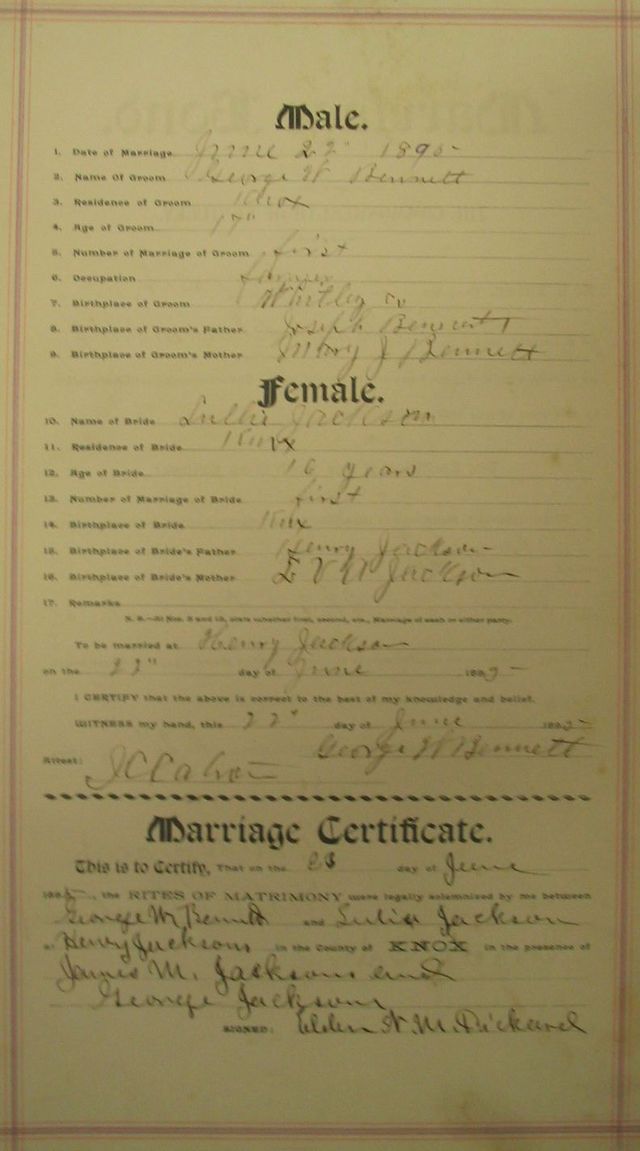 Male.
1. Date of Marriage June 22" 1895
2. Name Of Groom George W Bennett
3. Residence of Groom Knox
4. Age of Groom 17"
5. Number of Marriage of Groom first
6. Occupation farmer
7. Birthplace of Groom Whitley co
8. Birthplace of Groom's Father Joseph Bennett
9. Birthplace of Groom's Mother Mary J Bennett
Female.
10. Name of Bride Jackson
11. Residence of Bride Knox
12. Age of Bride 16 years
13. Number of Marriage of Bride first
14. Birthplace of Bride Knx
15. Birthplace of Bride's Father Henry Jackson
16. Birthplace of Bride's Mother Jackson
17. Remarks
N. B.—At Nos. 5 and 13, state whether first, second, etc., Marriage of each or either party.
To be married at Henry Jackson
on the 22" day of June 1895
I CERTIFY that the above is correct to the best of my knowledge and belief.
WITNESS my hand, this 22" day of June 1895
George W Bennett
Attest:
Marriage Certificate.
This is to Certify, That on the day of June
1895, the RITES OF MATRIMONY were legally solemnized by me between
George W. Bennett and Jackson
at Henry Jacksons in the County of KNOX in the presence of
James M. Jackson and
George Jackson
SIGNED: